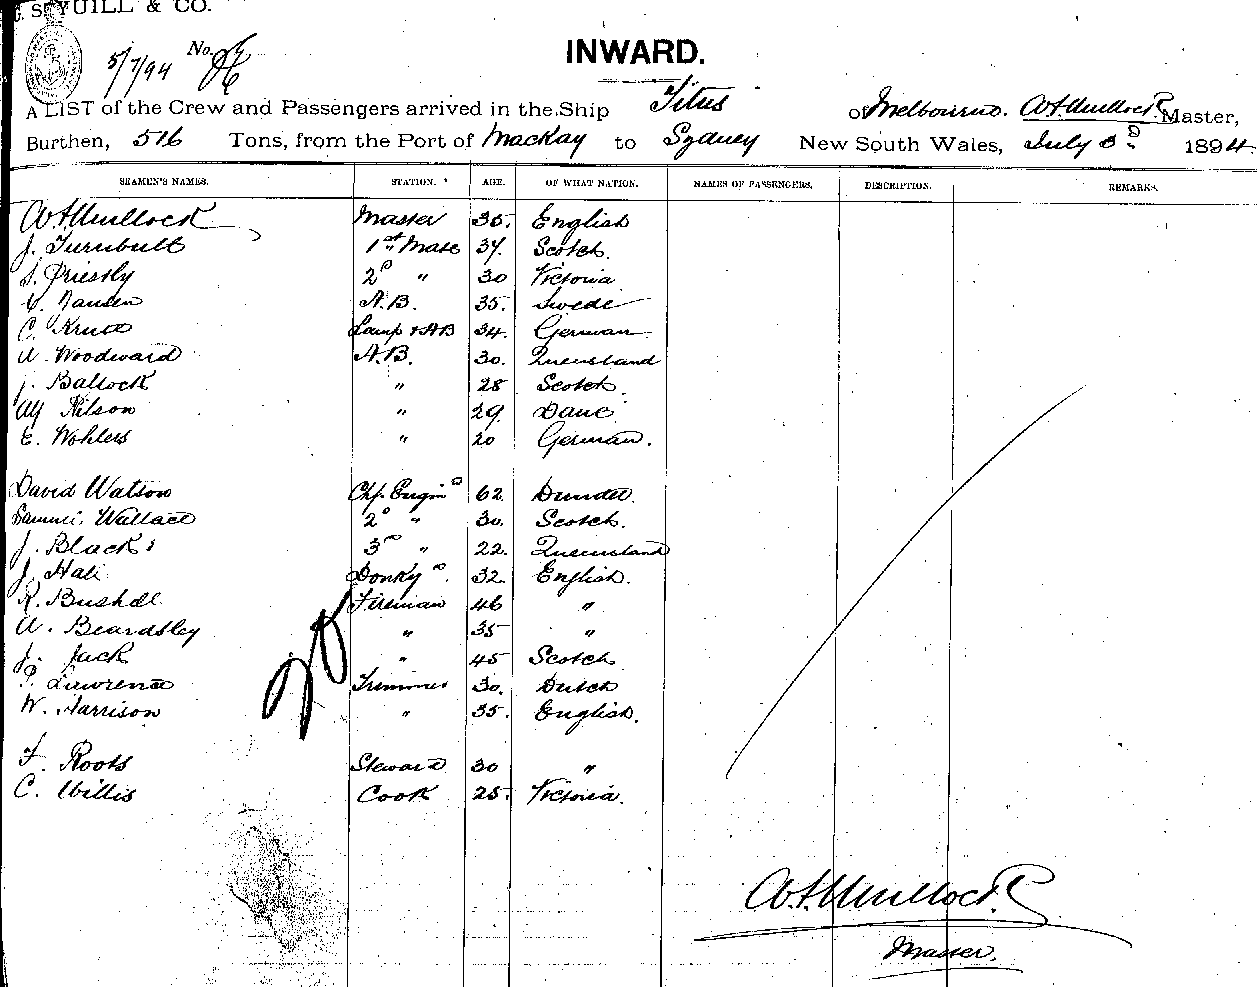 G. S. YUILL & CO.
5/7/94 No.
INWARD.
A LIST of the Crew and Passengers arrived in the Ship Titus of Melbourne. W. H. Mullock Master,
Burthen, 516 Tons, from the Port of Mackay to Sydney New South Wales, July 1894
SEAMEN'S NAMES. STATION. AGE. OF WHAT NATION. NAMES OF PASSENGERS. DESCRIPTION. REMARKS.
Mullock Master 35. English
J. Turnbull 1st Mate 37. Scotch.
Priestly 2D " 30 Victoria
Hansen A.B. 35. Swede
C. Lamp & AB 34. German
W. Woodward A.B. 30. Queensland
J. Ballock " 28 Scotch.
Alf Nilson " 29. Dane
E. Wohlers " 20 German.
David Watson Chf. Engin 62. Dundee.
Wallace 2D " 30. Scotch.
J. Black 3rd " 22. Queensland
J. Hall Donky 32. English.
R. Bushell Fireman 46 "
W. Beardsley " 35 "
J. Jack " 45 Scotch
P. Lawrence Trimmer 30. Dutch
W. Harrison " 35. English.
20
F. Roots Steward 30 "
C. Willis Cook 25. Victoria.
Mullock
Master.